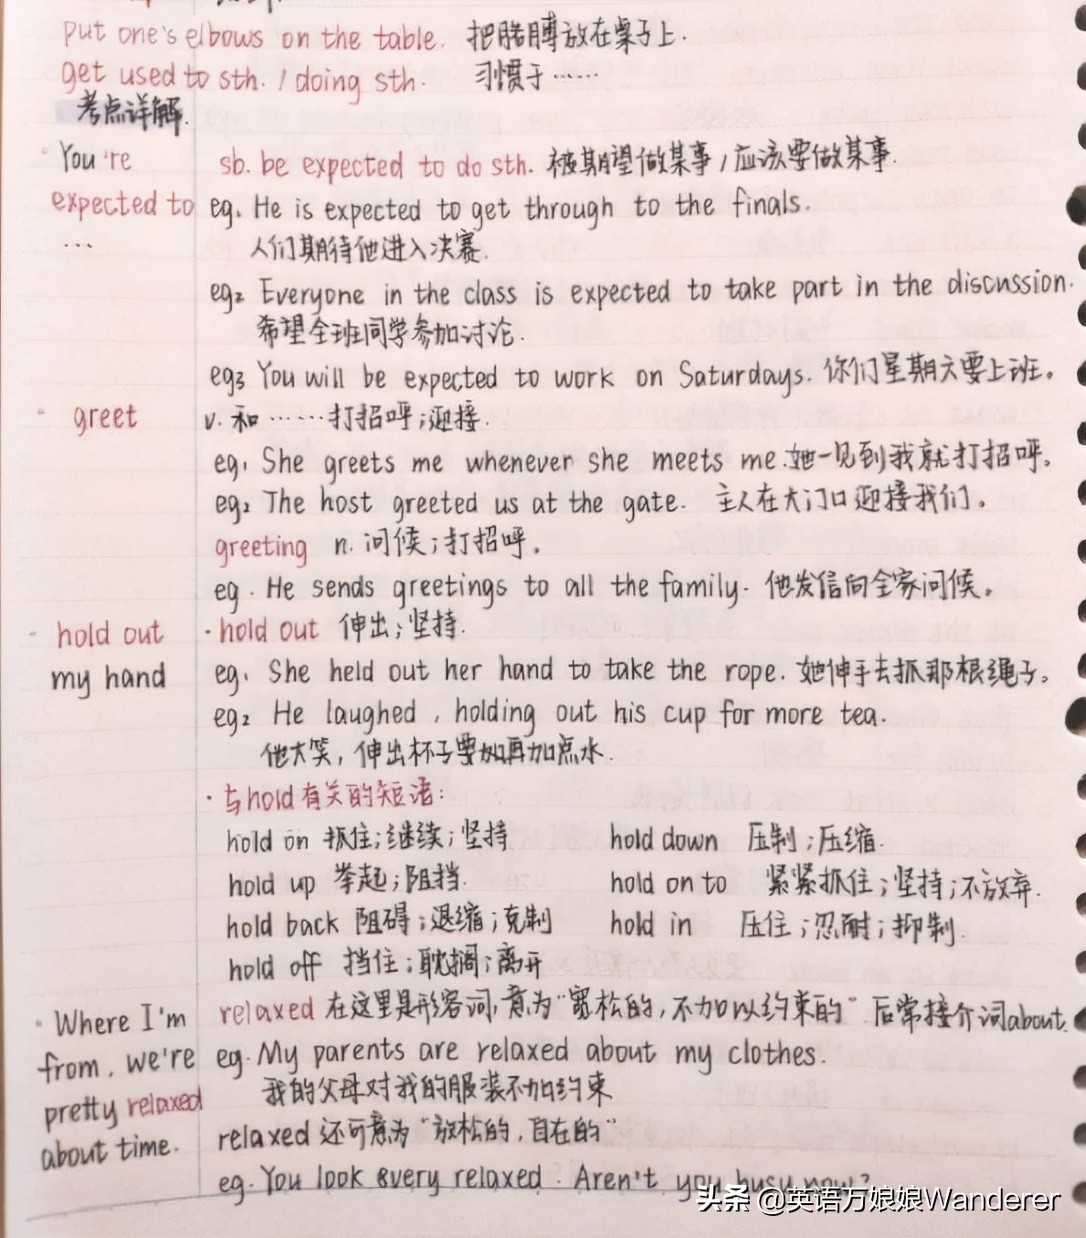 put one's elbows on the table. 把胳膊放在桌子上.
get used to sth. / doing sth. 习惯于……
考点详解.
You're sb. be expected to do sth. 被期望做某事/应该要做某事.
expected to eg1 He is expected to get through to the finals.
... 人们期待他进入决赛.
eg2 Everyone in the class is expected to take part in the discussion.
希望全班同学参加讨论.
eg3 You will be expected to work on Saturdays. 你们星期六要上班。
greet v. 和……打招呼;迎接.
eg1 She greets me whenever she meets me.她一见到我就打招呼。
eg2 The host greeted us at the gate. 主人在大门口迎接我们。
greeting n. 问候;打招呼。
eg. He sends greetings to all the family. 他发信向全家问候。
hold out ·hold out 伸出;坚持.
my hand eg1 She held out her hand to take the rope. 她伸手去抓那根绳子。
eg2 He laughed, holding out his cup for more tea.
他大笑,伸出杯子要再加点水.
·与hold有关的短语:
hold on 抓住;继续;坚持 hold down 压制;压缩.
hold up 举起;阻挡. hold on to 紧紧抓住;坚持;不放弃.
hold back 阻碍;退缩;克制 hold in 压住;忍耐;抑制.
hold off 挡住;耽搁;离开
Where I'm relaxed 在这里是形容词,意为"宽松的,不加以约束的" 后常接介词about.
from, we're eg. My parents are relaxed about my clothes.
我的父母对我的服装不加约束
pretty relaxed relaxed 还可意为"放松的,自在的"
about time. eg. You look very relaxed. Aren't you busy now?
头条 @英语万娘娘Wanderer